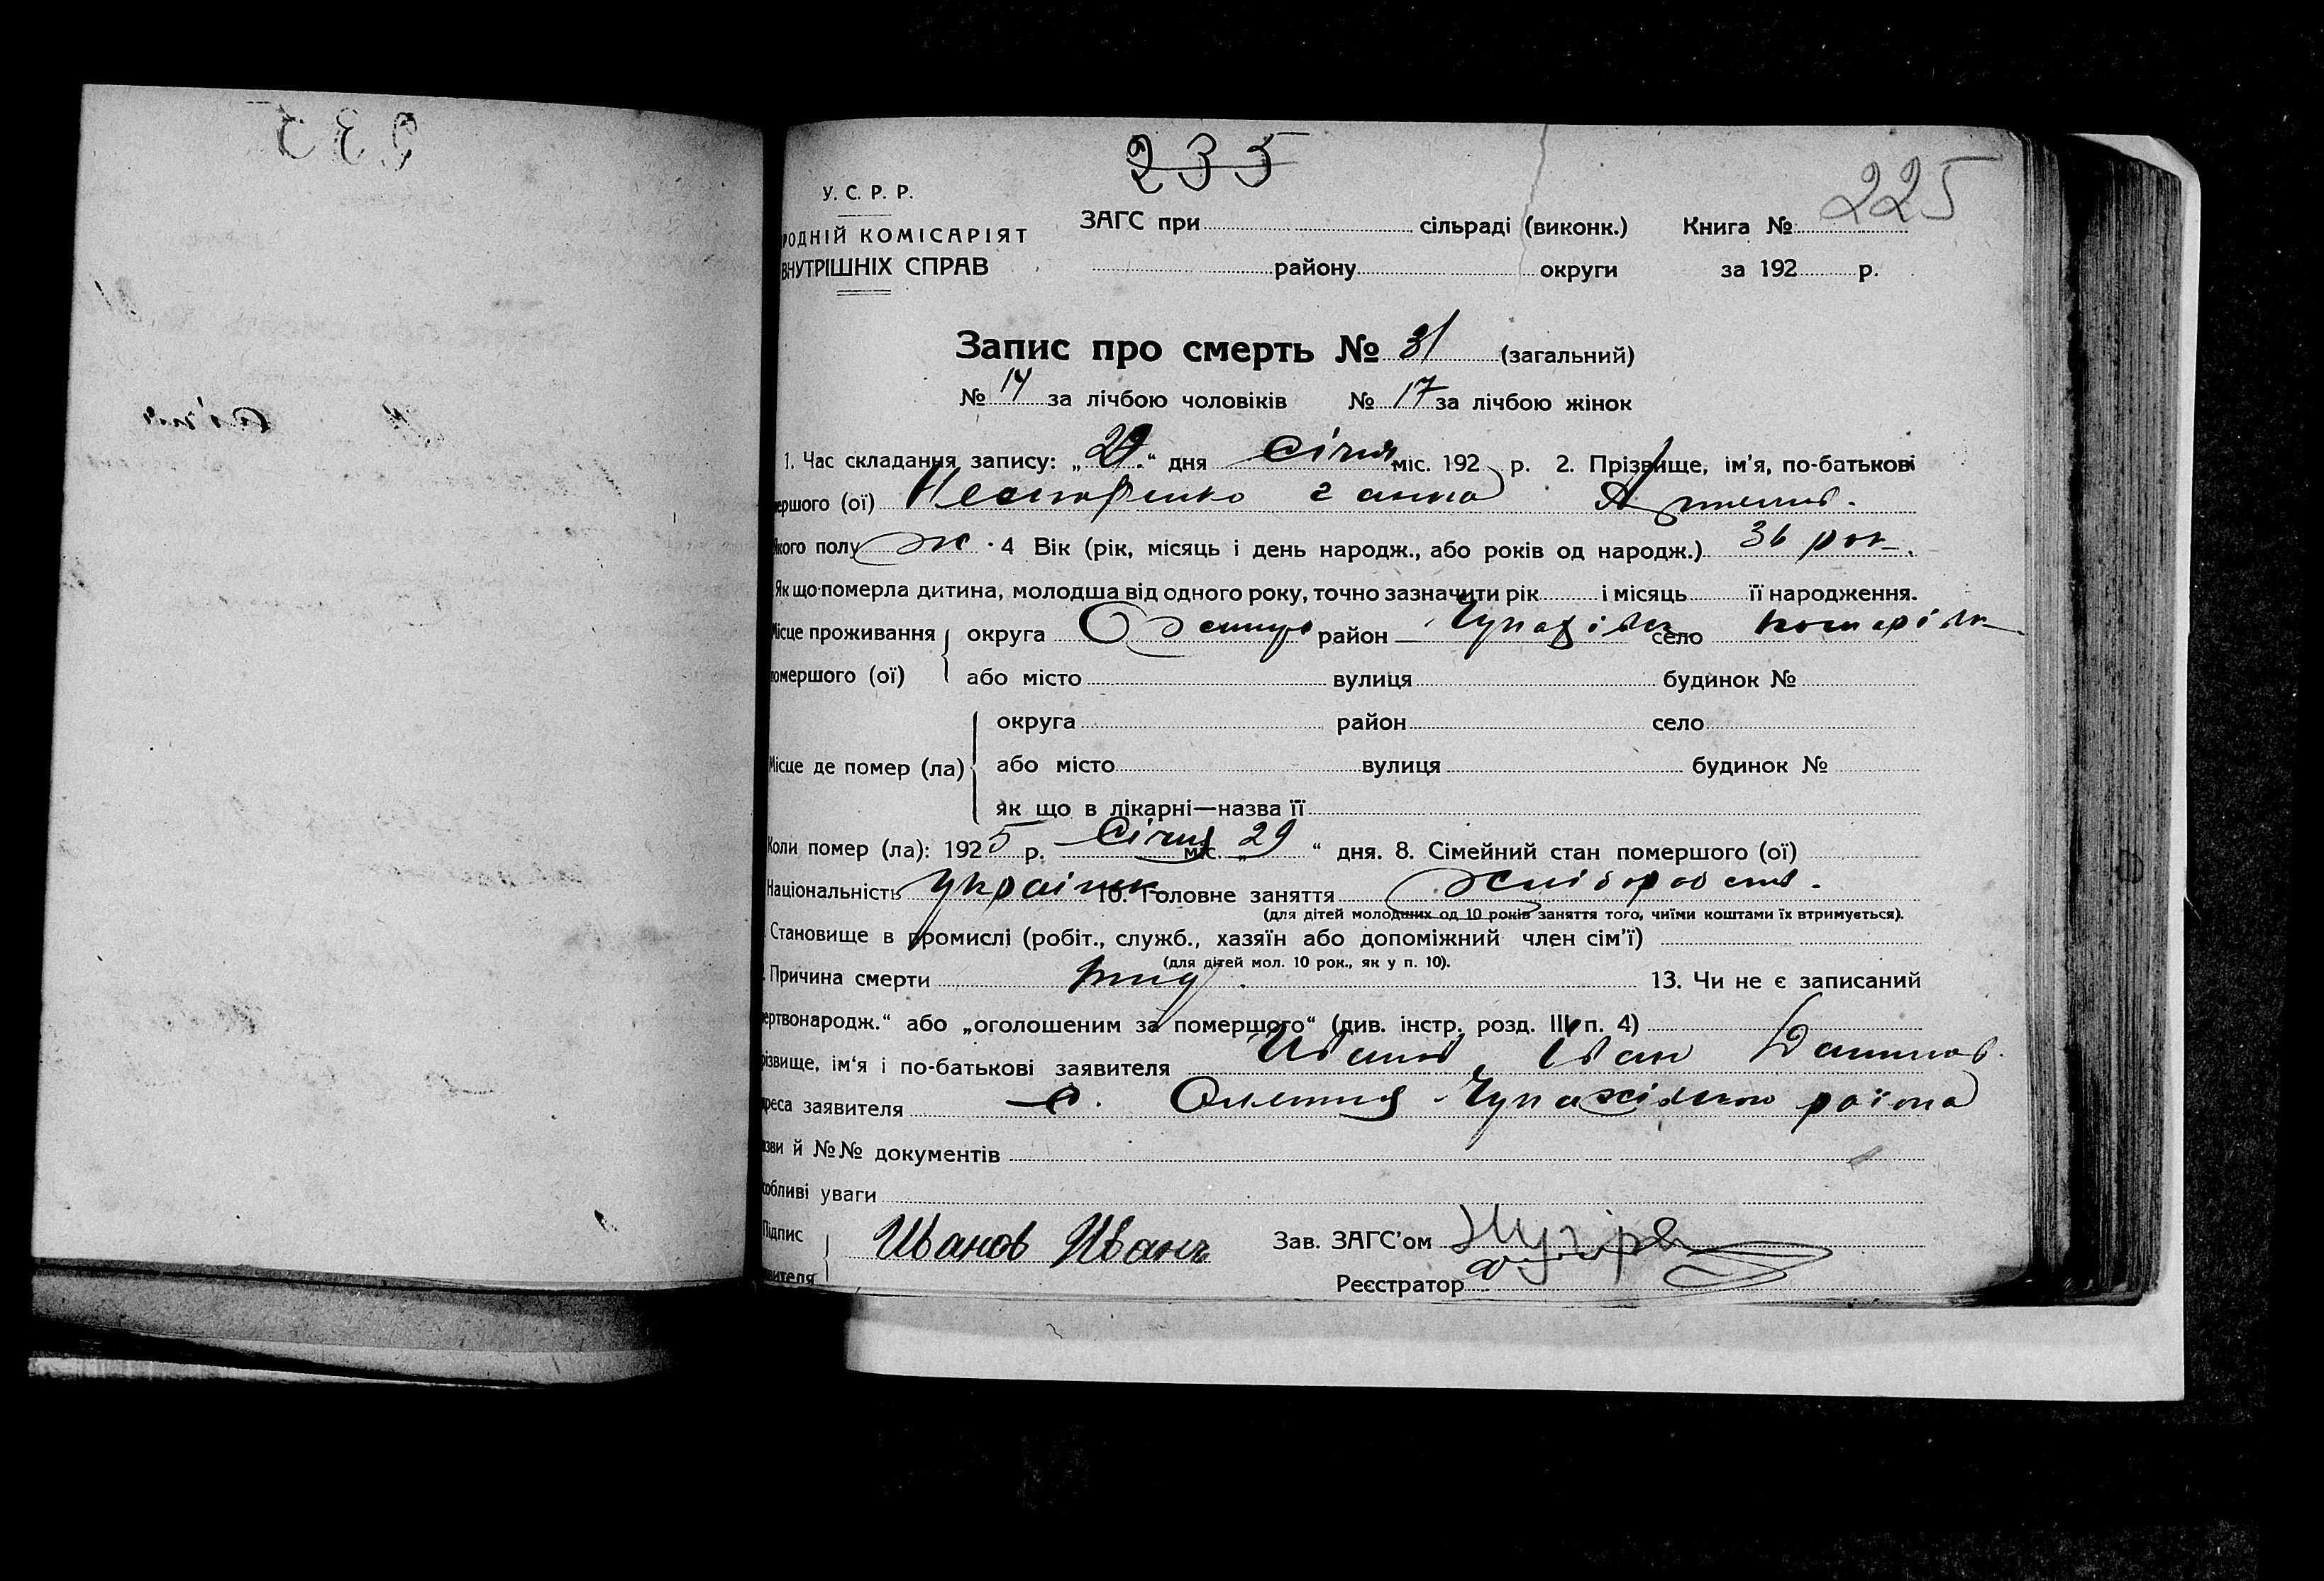 235
225
У. С. Р. Р.
РОДНІЙ КОМІСАРІЯТ
ВНУТРІШНІХ СПРАВ
ЗАГС при сільраді (виконк.) Книга №
району округи за 192 р.
Запис про смерть № 31 (загальний)
№ 14 за лічбою чоловіків № 17 за лічбою жінок
1. Час складання запису: „29“ дня Січня міс. 192 р. 2. Прізвище, ім'я, по-батькові
ершого (ої) Нестеренко Ганна
якого полу ж. 4 Вік (рік, місяць і день народж., або років од народж.) 36 рок.
Як що померла дитина, молодша від одного року, точно зазначити рік і місяць її народження.
Місце проживання округа район село
омершого (ої) або місто вулиця будинок №
округа район село
Місце де помер (ла) або місто вулиця будинок №
як що в лікарні—назва її
Коли помер (ла): 1925 р. Січня міс. „29“ дня. 8. Сімейний стан помершого (ої)
Національність українк 10. Головне заняття хлібороб
(для дітей молодших од 10 років заняття того, чиїми коштами їх втримується).
Становище в промислі (робіт., служб., хазяїн або допоміжний член сім'ї)
(для дітей мол. 10 рок., як у п. 10).
Причина смерти 13. Чи не є записаний
ертвонародж.“ або „оголошеним за помершого“ (див. інстр. розд. III п. 4)
різвище, ім'я і по-батькові заявителя Иванов Іван Данилов.
дреса заявителя с.
азви й №№ документів
собливі уваги
Підпис Иванов Иванъ Зав. ЗАГС'ом
вителя Реєстратор